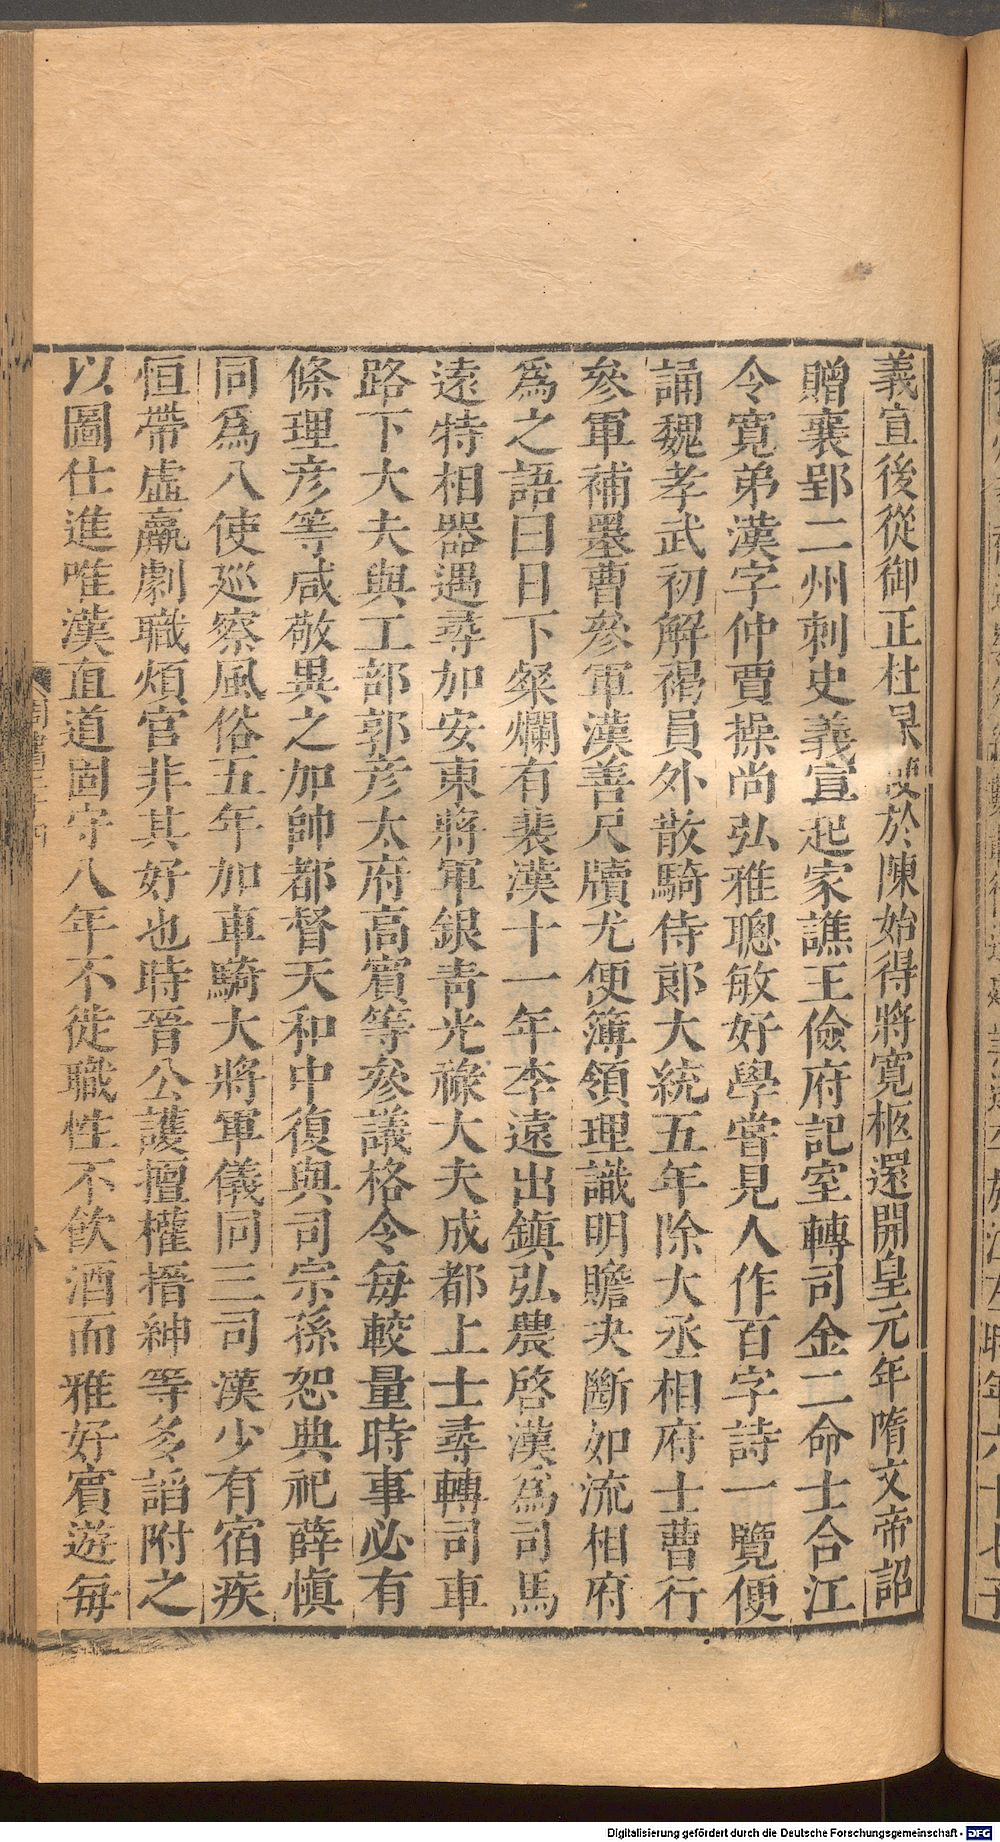 義宣後從御正杜杲使於陳始得將寬柩還開皇元年隋文帝詔
贈襄郢二州刺史義宣起家譙王儉府記室轉司金二命士合江
令寬弟漢字仲賈操尚弘雅聰敏好學嘗見人作百字詩一覽便
誦魏孝武初解褐員外散騎侍郎大統五年除大丞相府士曹行
參軍補墨曹參軍漢善尺牘尤便簿領理識明贍决斷如流相府
爲之語曰日下粲爛有裴漢十一年李遠出鎮弘農啓漢爲司馬
遠特相器遇尋加安東將軍銀青光祿大夫成都上士尋轉司車
路下大夫與工部郭彥太府高賔等參議格令每較量時事必有
條理彥等咸敬異之加帥都督天和中復與司宗孫恕典祀薛愼
同爲八使巡察風俗五年加車騎大將軍儀同三司漢少有宿疾
恒帶虛羸劇職煩官非其好也時晉公護擅權搢紳等多諂附之
以圖仕進唯漢直道固守八年不徙職性不飲酒而雅好賔遊每
Digitalisierung gefördert durch die Deutsche Forschungsgemeinschaft - DFG